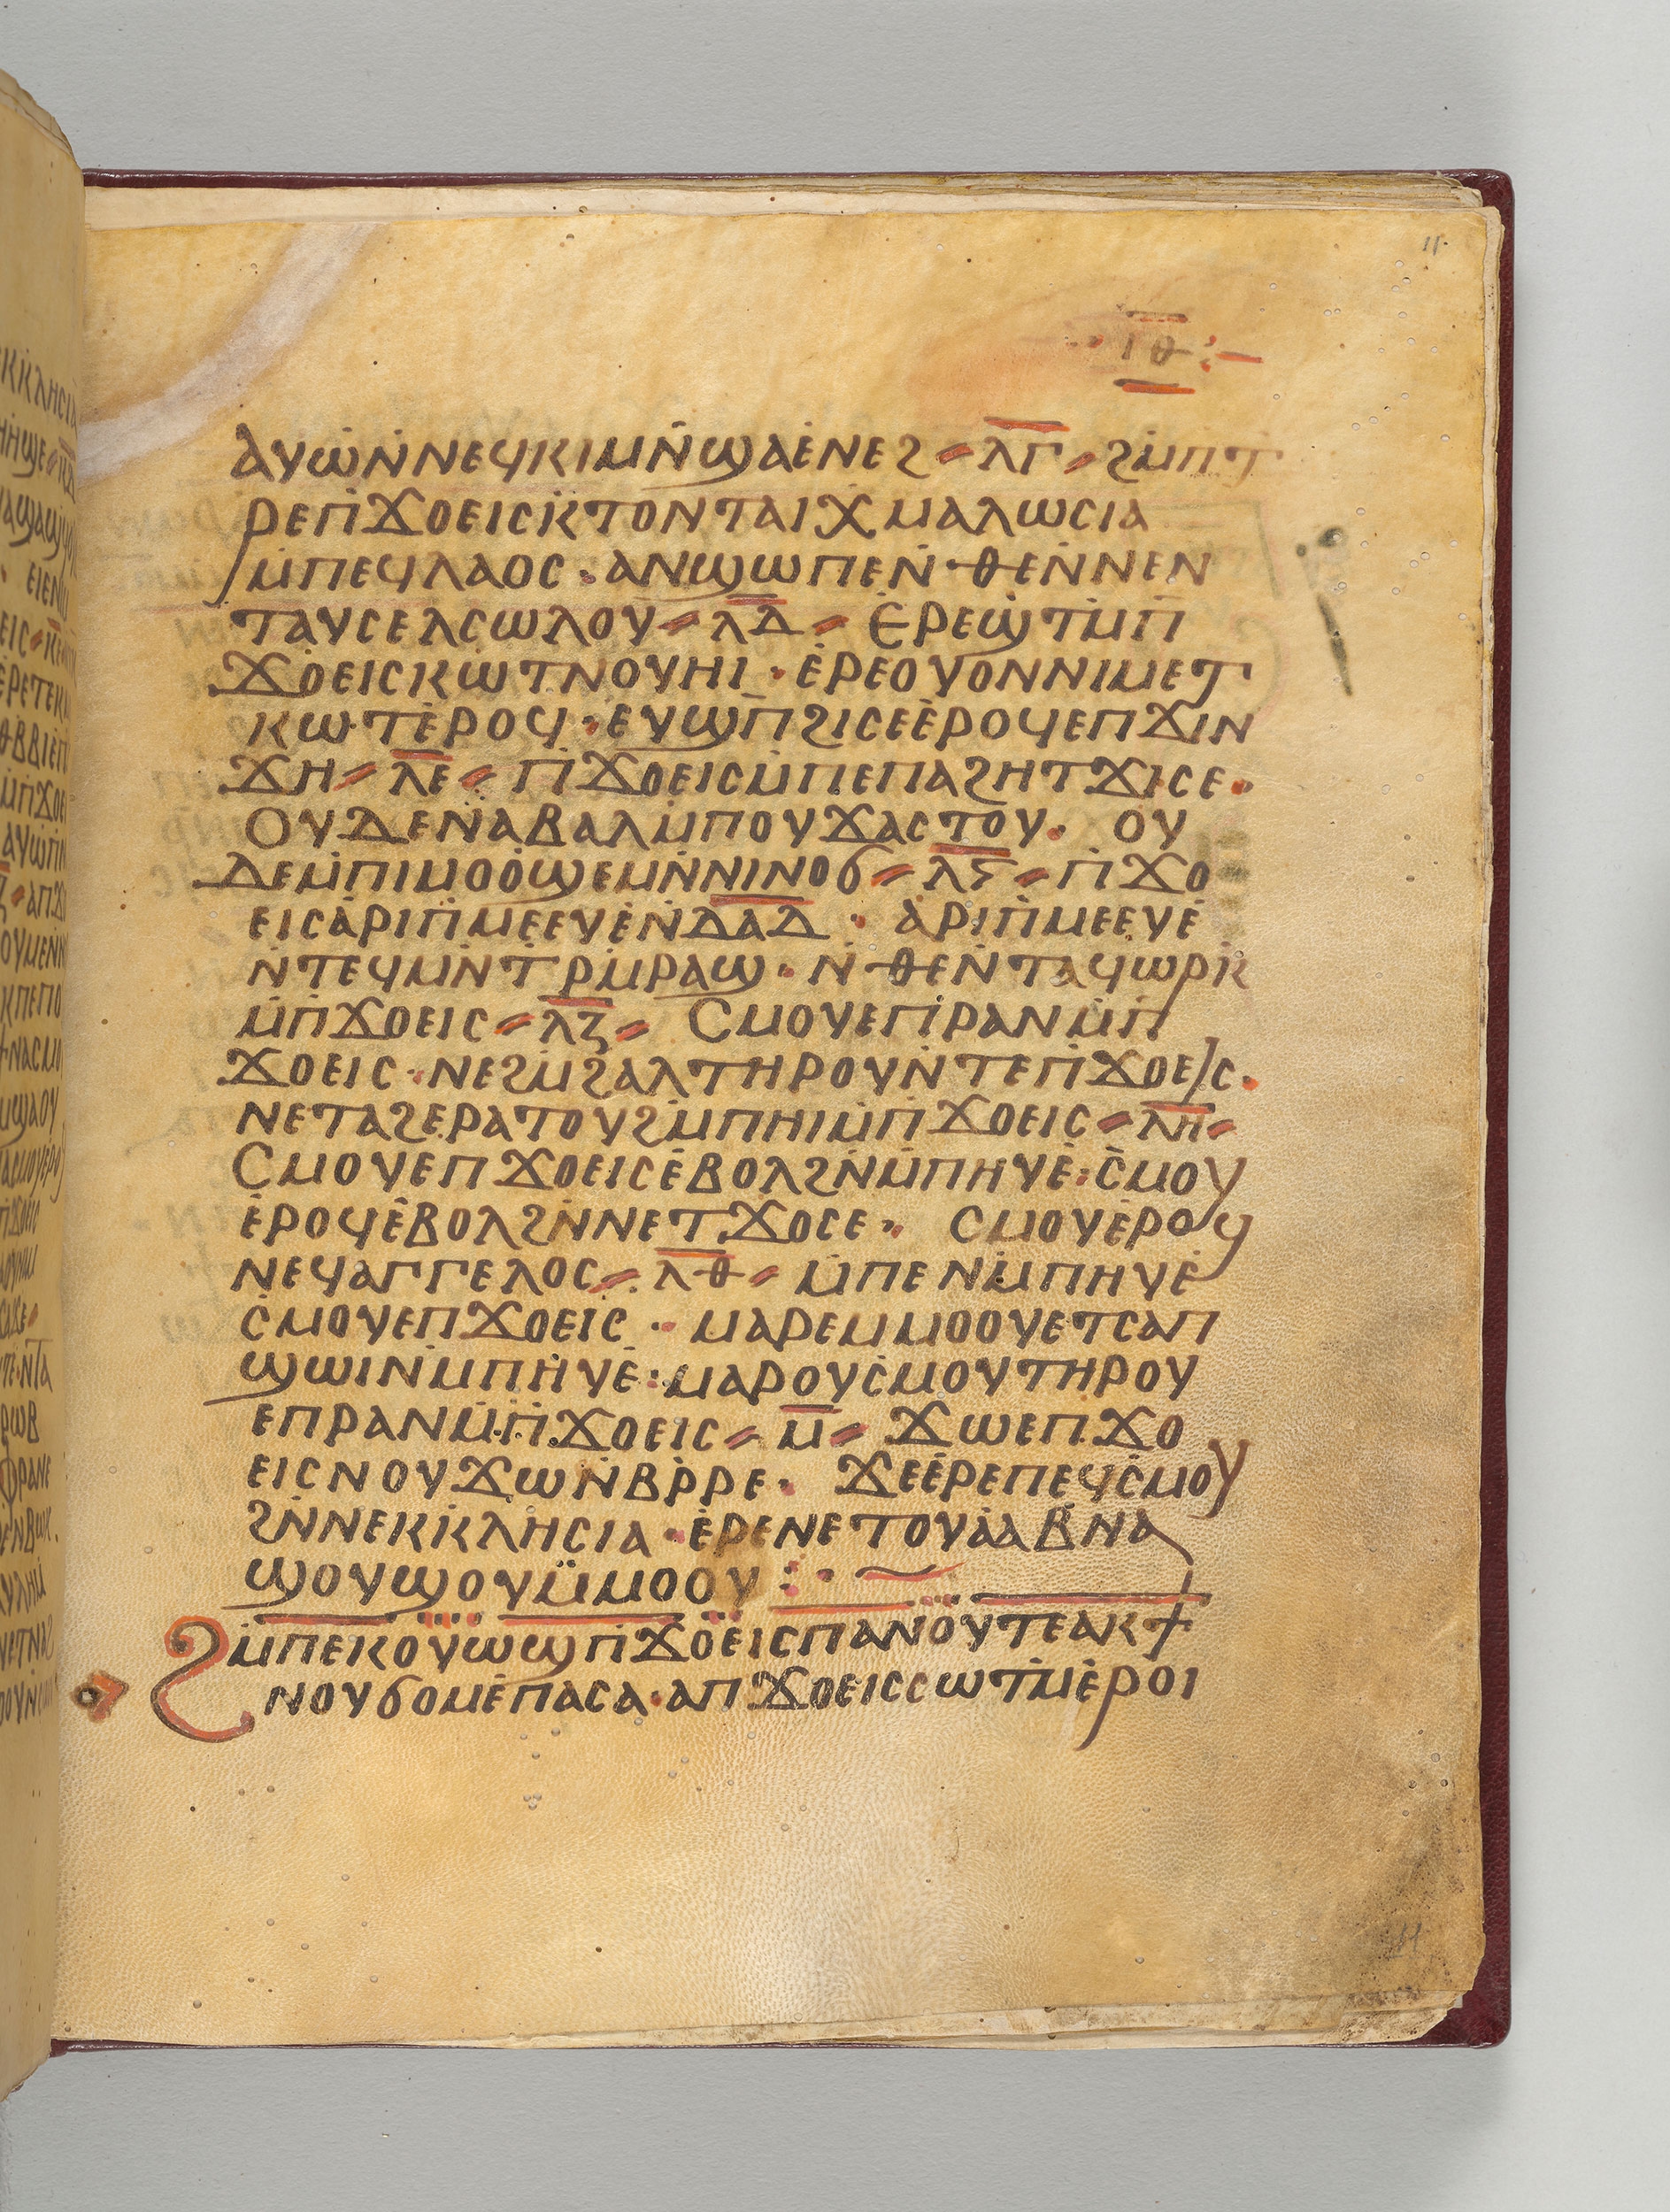 ⲓⲑ
ⲁⲩⲱⲛ̇ⲛⲉϥⲕⲓⲙⲛ̇ϣⲁⲉ̇ⲛⲉϩ ⸗ ⲗ̅ⲅ̅ ⸗ ϩⲙ̇ⲡⲧ
ⲣⲉⲡ̇ϫⲟⲉⲓⲥⲕ̇ⲧⲟⲛⲧⲁⲓⲭⲙⲁⲗⲱⲥⲓⲁ
ⲙ̇ⲡⲉϥⲗⲁⲟⲥ · ⲁⲛϣⲱⲡⲉⲛ̇ⲑⲉⲛ̇ⲛⲉⲛ
ⲧⲁⲩⲥⲉⲗⲥⲱⲗⲟⲩ ⸗ ⲗ̅ⲇ̅ ⸗ ⲉⲣⲉϣ̇ⲧⲙ̇ⲡ
ϫⲟ̇ⲉⲓⲥⲕⲱ̇ⲧⲛⲟⲩⲏⲓ · ⲉ̇ⲣⲉⲟⲩⲟⲛⲛⲓⲙⲉⲧ
ⲕⲱⲧⲉ̇ⲣⲟϥ · ⲉⲩϣⲡ̇ϩⲓⲥⲉⲉ̇ⲣⲟϥⲉⲡϫⲓⲛ
ϫⲏ ⸗ ⲗ̅ⲉ̅ ⸗ ⲡ̇ϫⲟⲉⲓⲥⲙ̇ⲡⲉⲡⲁϩⲏⲧϫⲓⲥⲉ ·
ⲟⲩⲇⲉⲛ̇ⲁⲃⲁⲗⲙ̇ⲡⲟⲩϫⲁⲥⲧⲟⲩ · ⲟⲩ
ⲇⲉⲙ̇ⲡⲓⲙⲟⲟ̇ϣⲉⲙⲛ̇ⲛⲓⲛⲟϭ ⸗ ⲗ̅ⲋ̅ ⸗ ⲡ̇ϫⲟ
ⲉⲓⲥⲁ̇ⲣⲓⲡ̇ⲙⲉⲉⲩⲉ̇ⲛ̇ⲇ̅ⲁ̅ⲇ̅ · ⲁ̇ⲣⲓⲡ̇ⲙⲉⲉⲩⲉ̇
ⲛ̇ⲧⲉϥⲙⲛ̇ⲧⲣⲙ̇ⲣⲁϣ · ⲛ̇ⲑⲉⲛ̇ⲧⲁϥⲱⲣⲕ̇
ⲙ̇ⲡ̇ϫⲟⲉⲓⲥ ⸗ ⲗ̅ⲍ̅ ⸗ ⲥⲙⲟⲩⲉⲡ̇ⲣⲁⲛⲙ̇ⲡ
ϫⲟⲉⲓⲥ · ⲛⲉϩⲙ̇ϩⲁⲗⲧⲏⲣⲟⲩⲛ̇ⲧⲉⲡ̇ϫⲟⲉⲓⲥ ·
ⲛⲉⲧⲁϩⲉⲣⲁⲧⲟⲩϩⲙ̇ⲡⲏⲓⲙ̇ⲡ̇ϫⲟⲉⲓⲥ ⸗ ⲗ̅ⲏ̅ ⸗
ⲥⲙⲟⲩⲉⲡϫⲟⲉⲓⲥⲉ̇ⲃⲟⲗϩⲛ̇ⲙ̇ⲡⲏⲩⲉ̇ : ⲥ̇ⲙⲟⲩ
ⲉ̇ⲣⲟϥⲉ̇ⲃⲟⲗϩⲛ̇ⲛⲉⲧϫⲟⲥⲉ · ⲥⲙⲟⲩⲉ̇ⲣⲟϥ
ⲛⲉϥⲁⲅⲅⲉⲗⲟⲥ ⸗ ⲗ̅ⲑ̅ ⸗ ⲙ̇ⲡⲉⲛⲙ̇ⲡⲏⲩⲉ̇
ⲥ̇ⲙⲟⲩⲉⲡϫⲟⲉⲓⲥ · ⲙⲁⲣⲉⲙⲙⲟⲟⲩⲉⲧⲥⲁⲡ
ϣⲱⲓⲛ̇ⲙⲡⲏⲩⲉ̇ : ⲙⲁⲣⲟⲩⲥ̇ⲙⲟⲩⲧⲏⲣⲟⲩ
ⲉⲡⲣⲁⲛⲙ̇ⲡ̇ϫⲟⲉⲓⲥ ⸗ ⲙ̅ ⸗ ϫⲱⲉⲡϫⲟ
ⲉⲓⲥⲛⲟⲩϫⲱⲛ̇ⲃⲣ̇ⲣⲉ · ϫⲉⲉ̇ⲣⲉⲡⲉϥⲥ̇ⲙⲟⲩ
ϩⲛ̇ⲛⲉⲕⲕ̇ⲗⲏⲥⲓⲁ · ⲉ̇ⲣⲉⲛⲉⲧⲟⲩⲁ̇ⲁⲃⲛⲁ
ϣⲟⲩϣⲟⲩⲙ̈ⲙⲟⲟⲩ :·
ϩⲙ̇ⲡⲉⲕⲟⲩⲱϣⲡ̇ϫⲟⲉⲓⲥⲡⲁⲛⲟⲩⲧⲉⲁⲕϯ
ⲛⲟⲩϭⲟⲙⲉ̇ⲡⲁⲥⲁ · ⲁⲡϫⲟⲉⲓⲥⲥⲱⲧⲙ̇ⲉ̇ⲣⲟⲓ